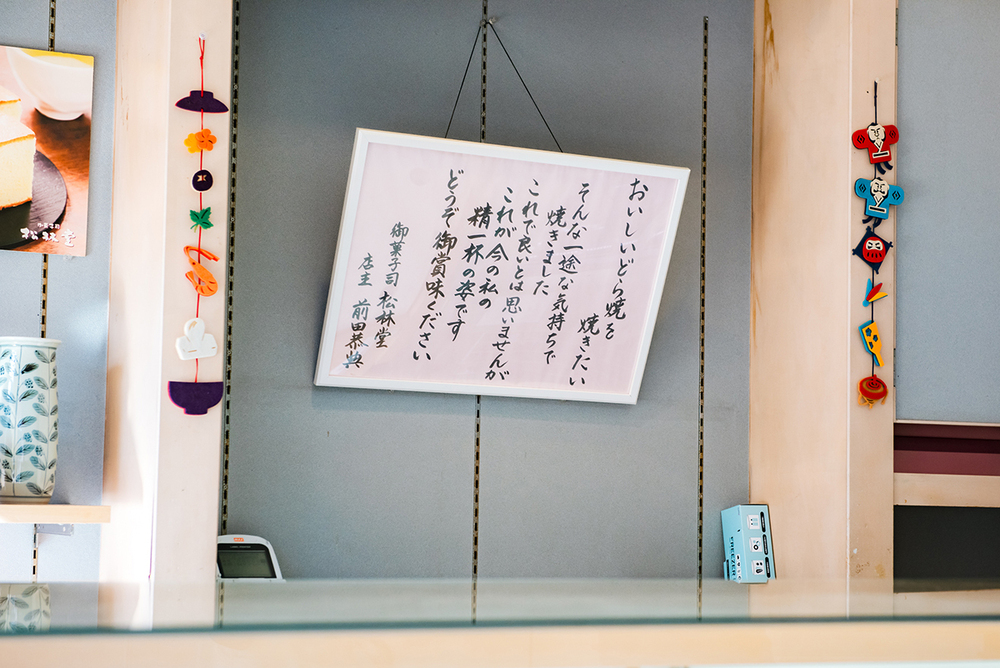 おいしいどら焼を
焼きたい
そんな一途な気持ちで
焼きました
これで良いとは思いませんが
これが今の私の
精一杯の姿です
どうぞ御賞味ください
御菓子司 松林堂
店主 前田恭典
松林堂
FREEZER